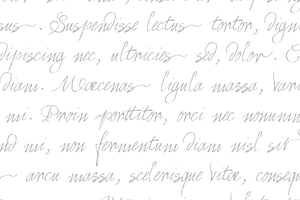 sus. Suspendisse lectus tortor, digni
dipiscing nec, ultricies sed, dolor. C
diam. Maecenas ligula massa, vari
mi. Proin porttitor, orci nec nonumm
nd mi, non fermentum diam nisl sit
arcu massa, scelerisque vitae, consequ